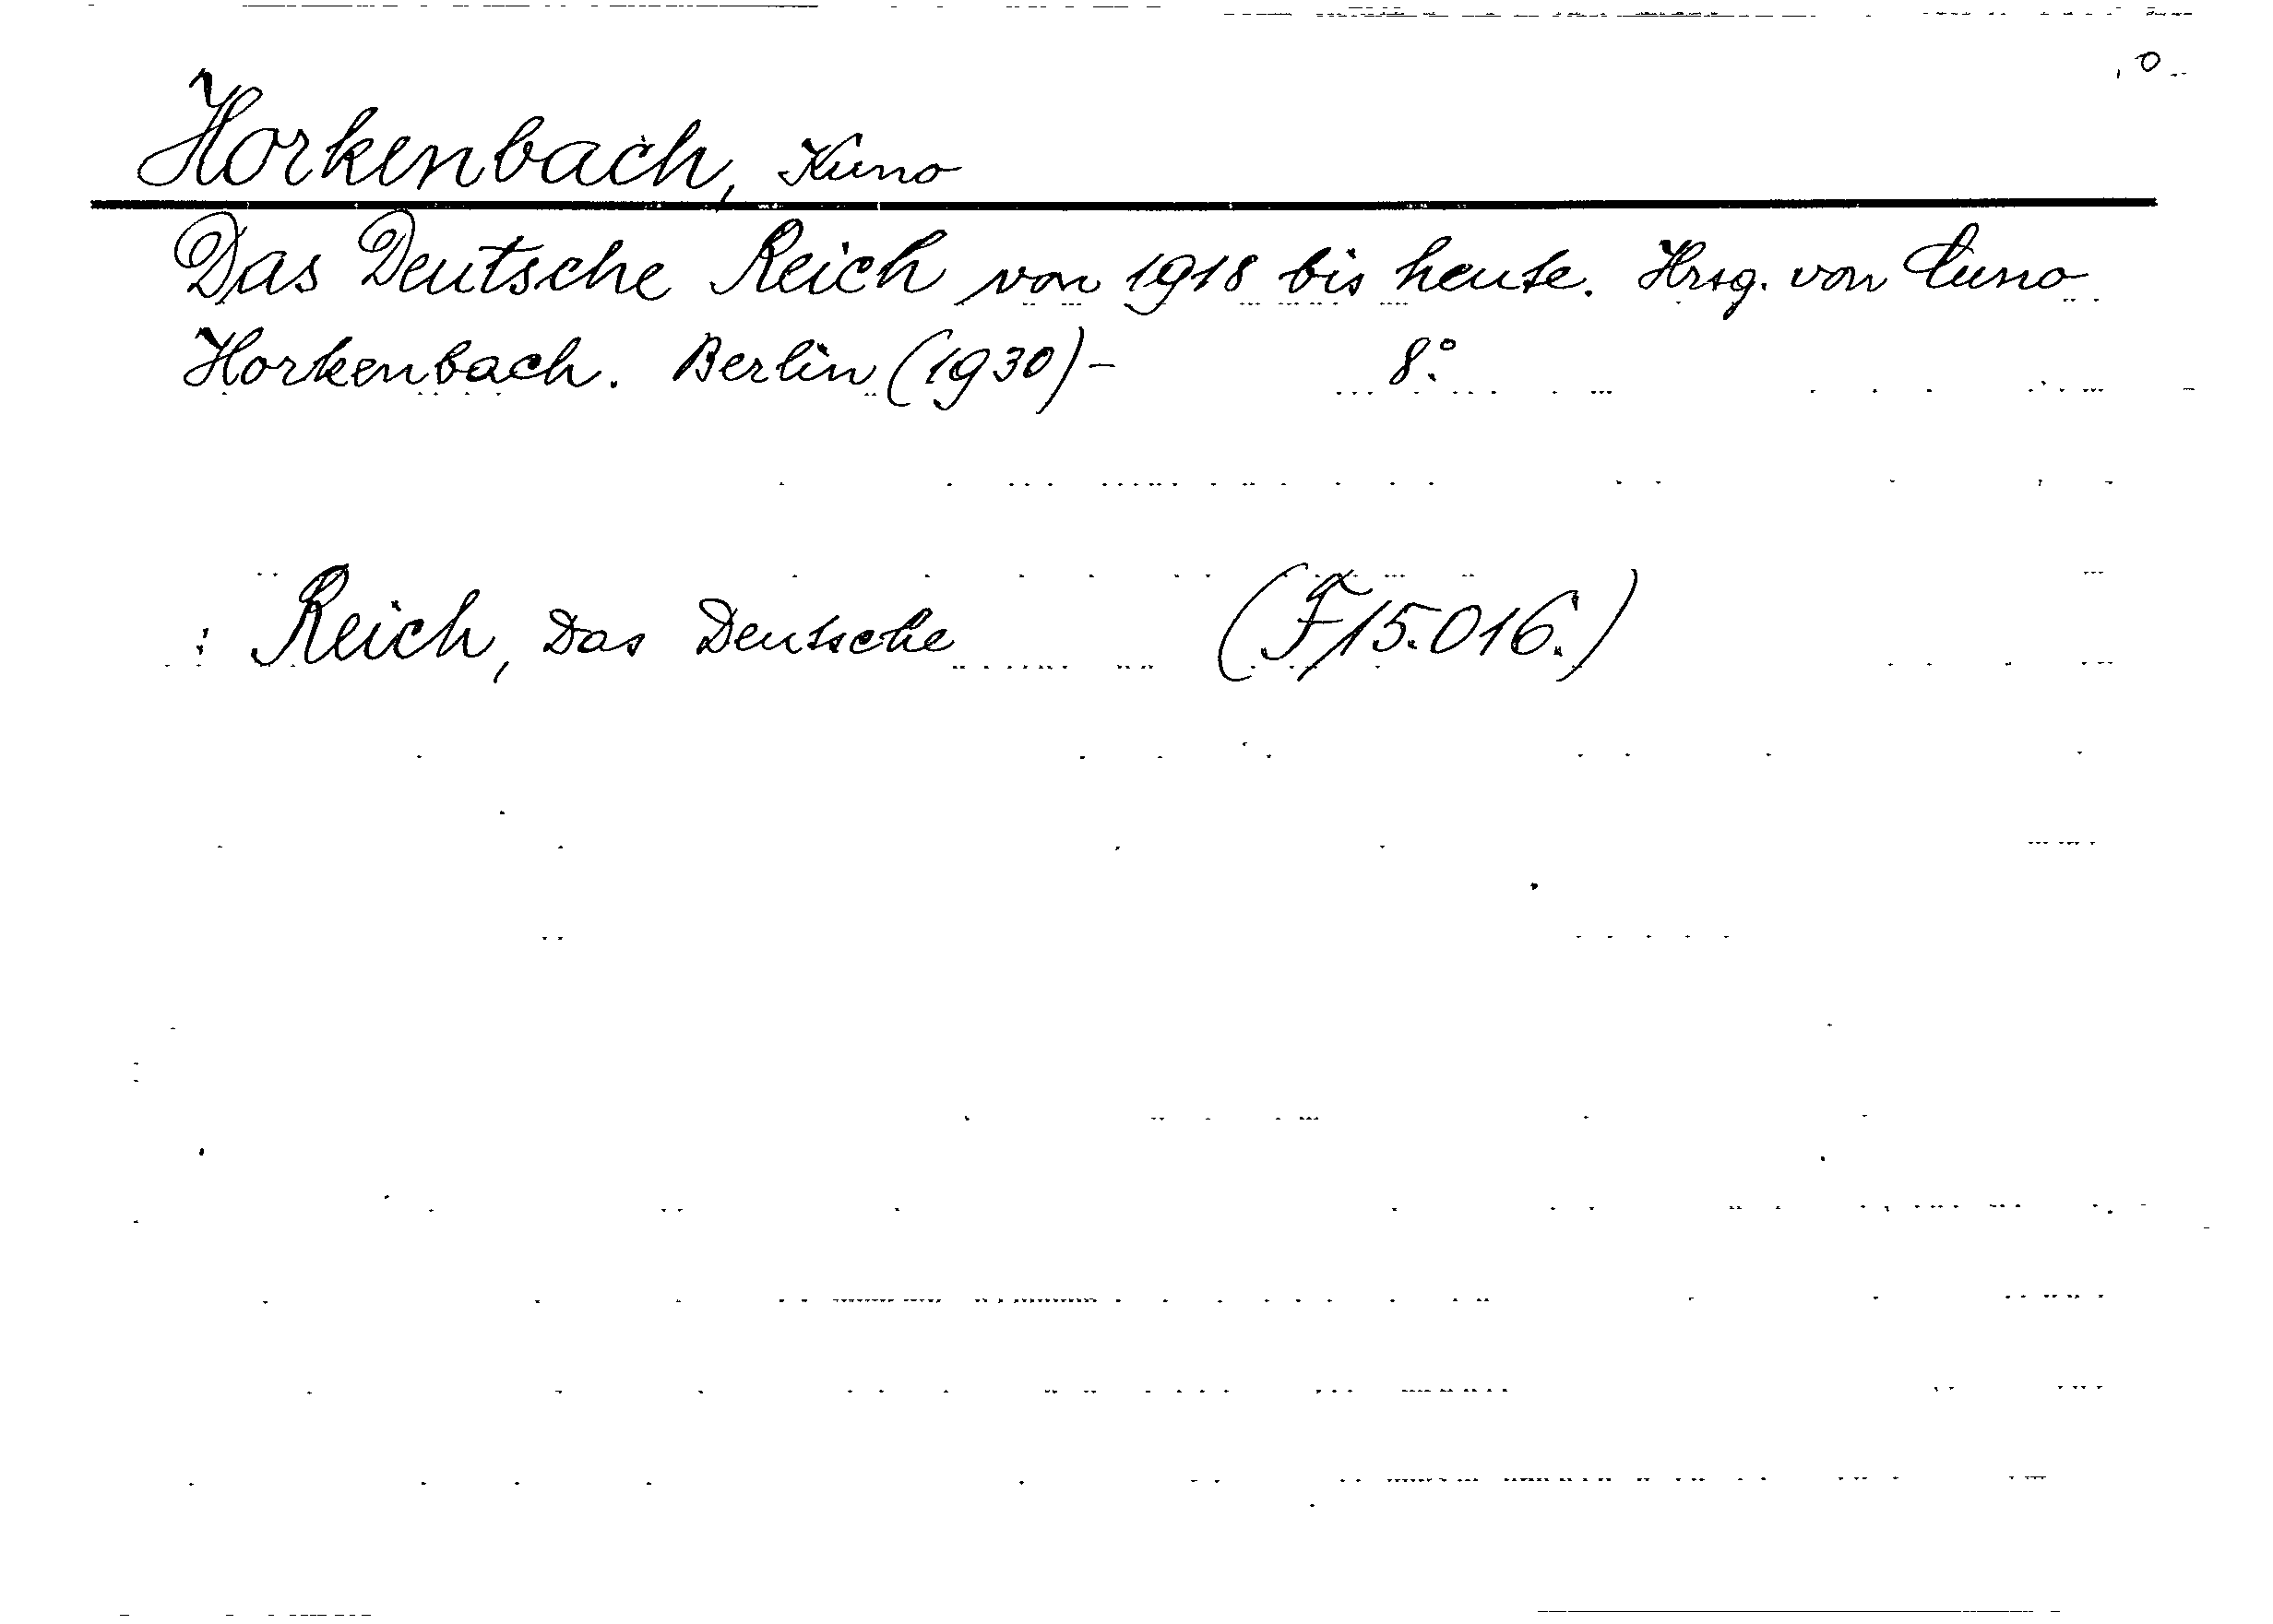 Horkenbach, Kuno
Das Deutsche Reich von 1918 bis heute. Hrsg. von Cuno
Horkenbach. Berlin (1930)- 8°.
: Reich, Das Deutsche (F15.016.)